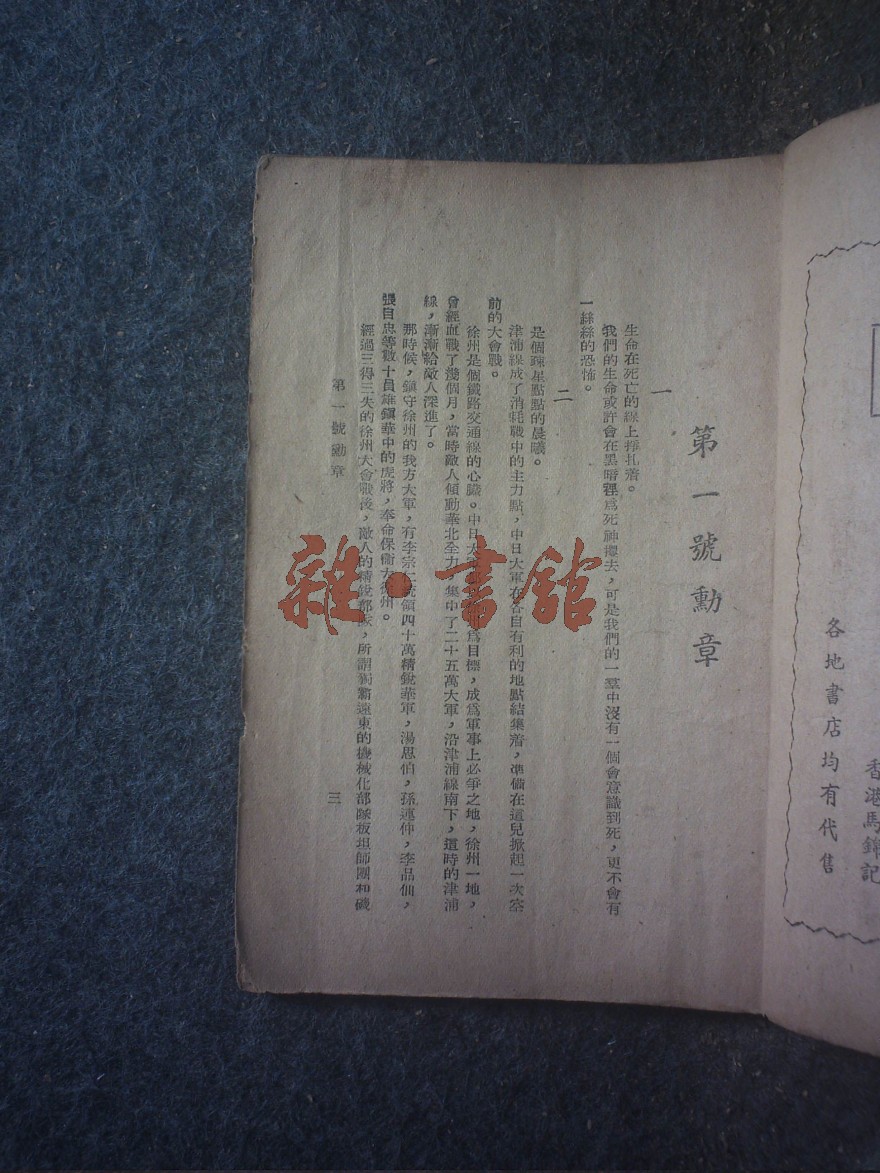 各地書店均有代售
香港馬錦記
第一號勳章
一
生命在死亡的線上掙扎着。
我們的生命或許會在黑暗裡爲死神攫去,可是我們的一羣中沒有一個會意識到死,更不會有
一絲絲的恐怖。
二
是個疎星點點的晨曦。
津浦線成了消耗戰中的主力點,中日大軍在各自有利的地點結集着,準備在這兒掀起一次空
前的大會戰。
徐州是個鐵路交通線的心臟。中日大 爲目標,成爲軍事上必爭之地,徐州一地,
曾經血戰了幾個月,當時敵人傾動華北全力,集中了二十五萬大軍,沿津浦線南下,這時的津浦
線,漸漸給敵人深進了。
那時候,鎭守徐州的我方大軍,有李宗仁統領四十萬精銳華軍,湯恩伯,孫連仲,李品仙,
張自忠等數十員雄鎭華中的虎將,奉命保衞大徐州。
經過三得三失的徐州大會戰後,敵人的精銳部隊,所謂獨霸遠東的機械化部隊板垣師團和磯
第一號勳章
三
雜·書館